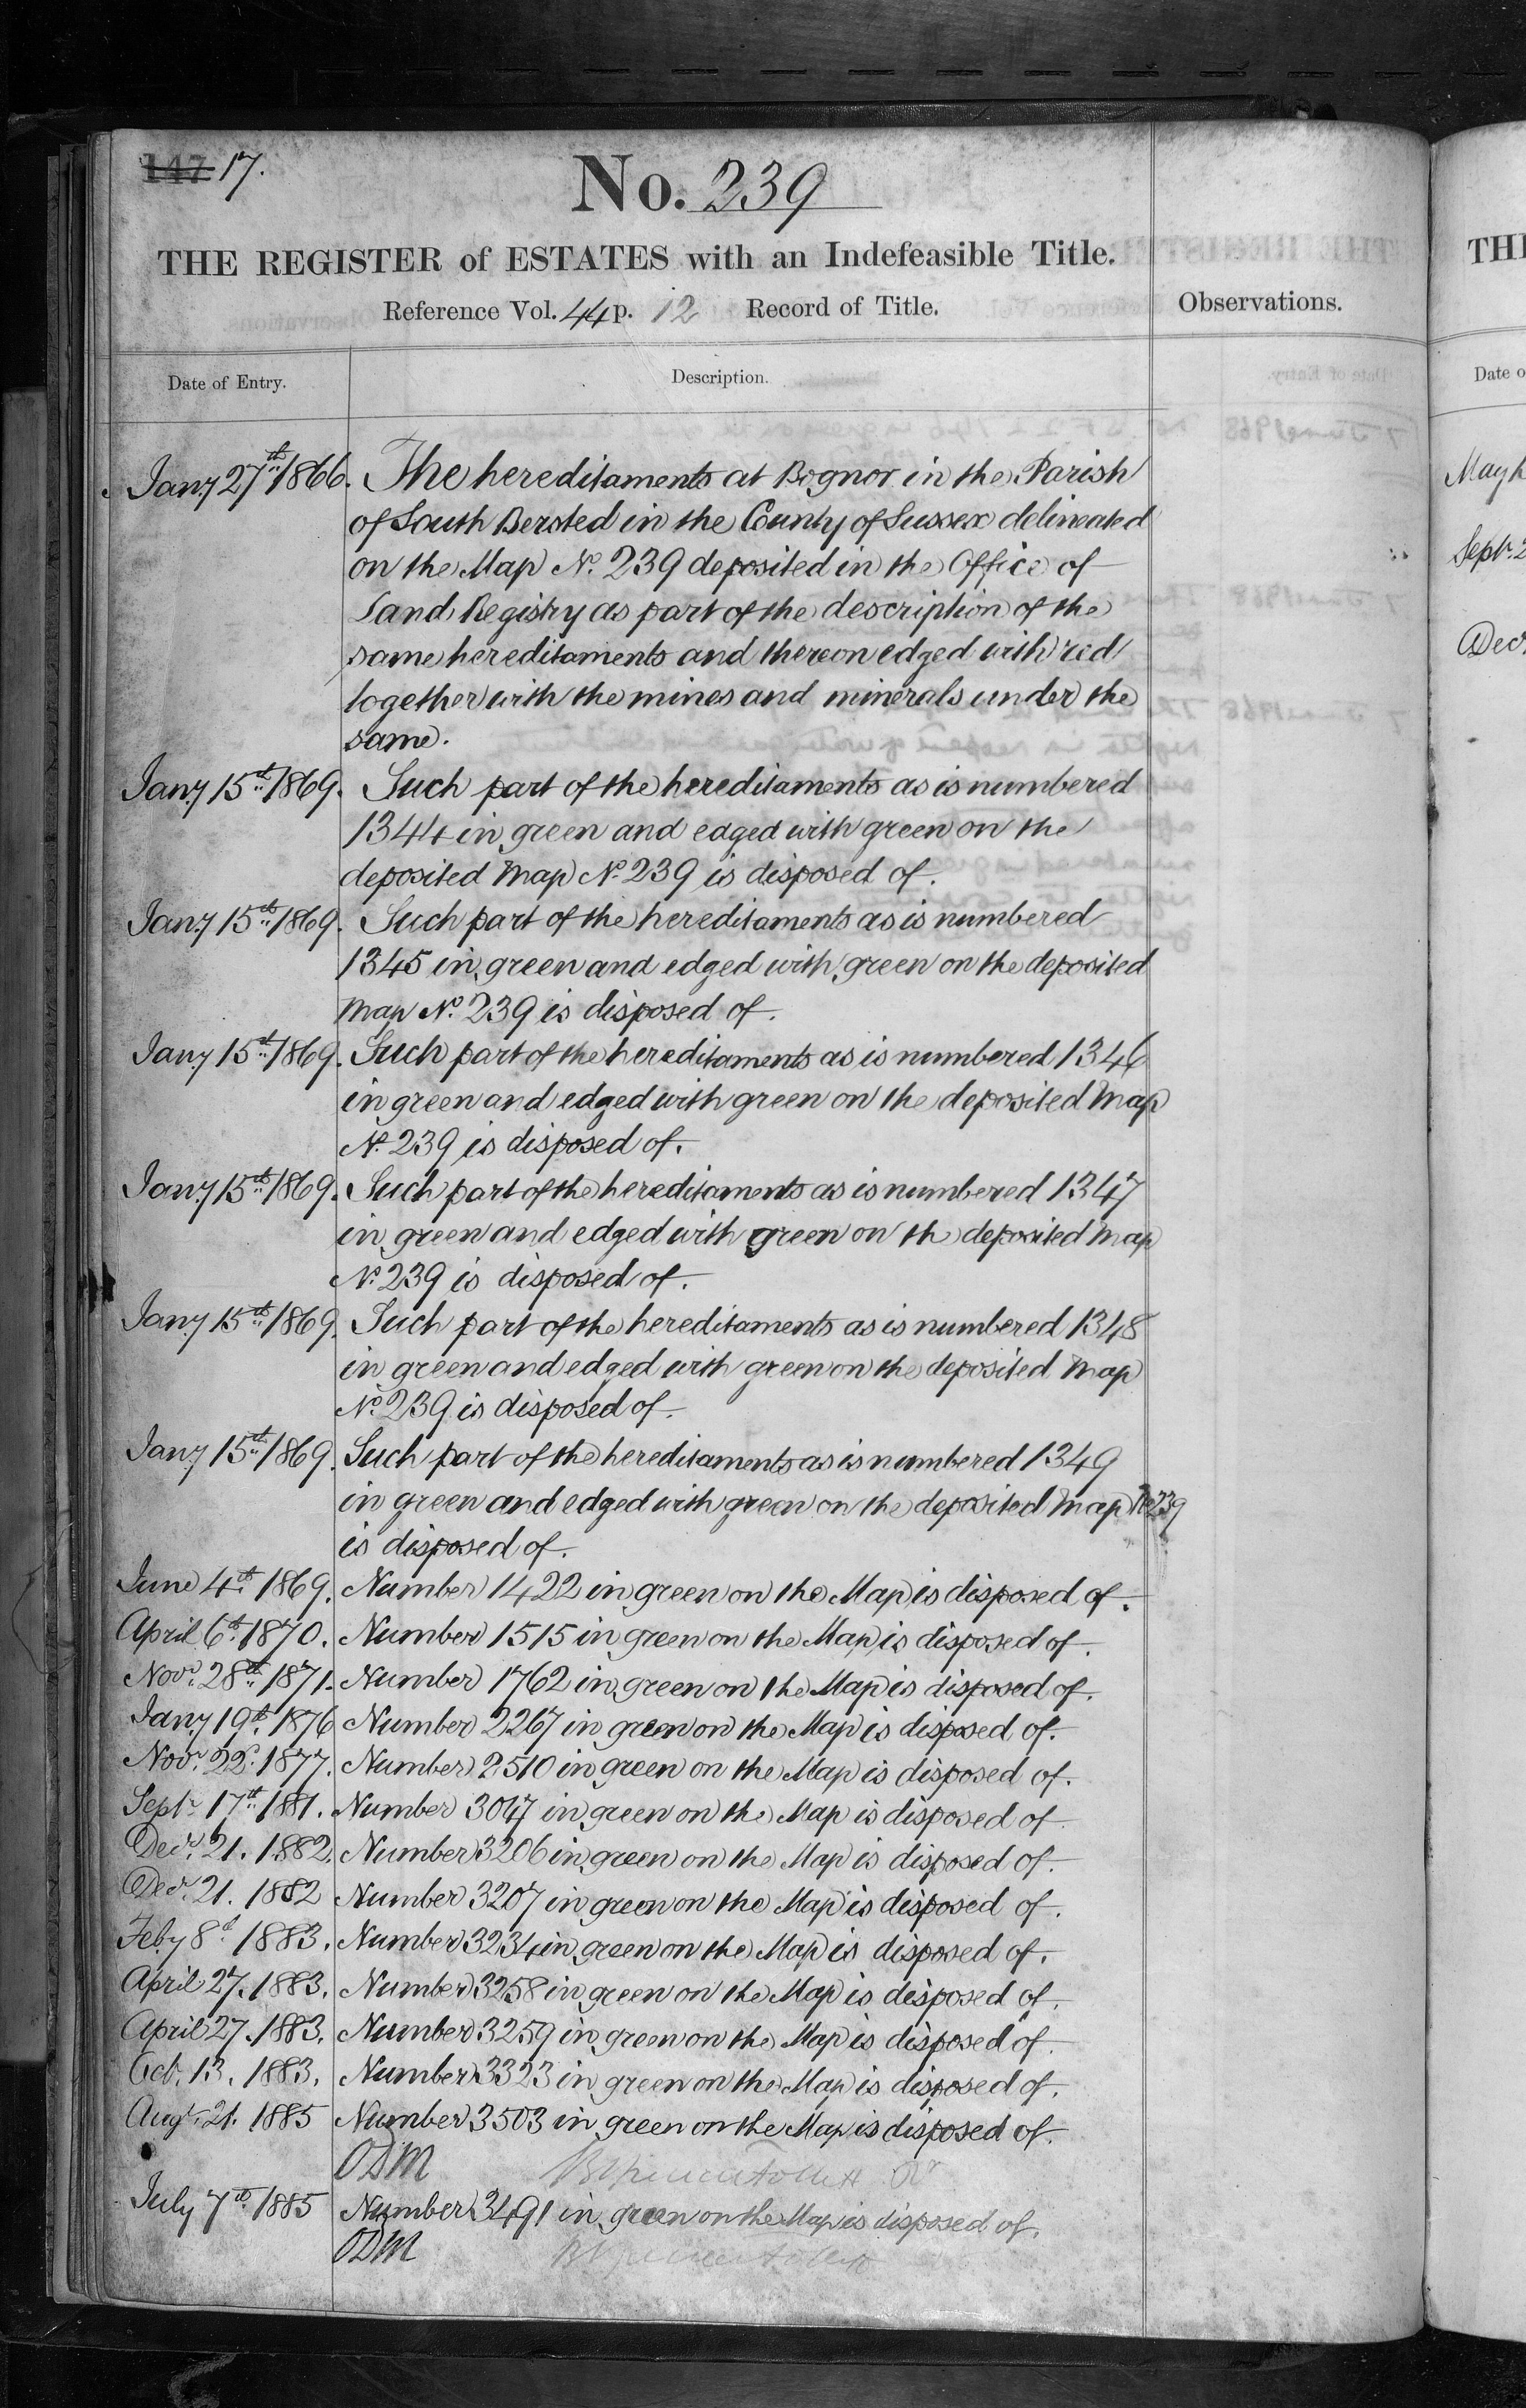 147 17.
No. 239
THE REGISTER of ESTATES with an Indefeasible Title.
Reference Vol. 44 p. 12 Record of Title.
Observations.
Date of Entry.
Description.
Jany 27th 1866. The hereditaments at Bognor in the Parish
of South Bersted in the County of Sussex delineated
on the Map No. 239 deposited in the Office of
Land Registry as part of the description of the
same hereditaments and thereon edged with red
together with the mines and minerals under the
same.
Jany 15th 1869. Such part of the hereditaments as is numbered
1344 in green and edged with green on the
deposited Map No. 239 is disposed of.
Jany 15th 1869. Such part of the hereditaments as is numbered
1345 in green and edged with green on the deposited
Map No. 239 is disposed of.
Jany 15th 1869. Such part of the hereditaments as is numbered 1346
in green and edged with green on the deposited Map
No. 239 is disposed of.
Jany 15th 1869. Such part of the hereditaments as is numbered 1347
in green and edged with green on th deposited Map
No. 239 is disposed of.
Jany 15th 1869. Such part of the hereditaments as is numbered 1348
in green and edged with green on the deposited Map
No. 239 is disposed of.
Jany 15th 1869. Such part of the hereditaments as is numbered 1349
in green and edged with green on the deposited Map No 239
is disposed of.
June 4th 1869. Number 1422 in green on the Map is disposed of.
April 6th 1870. Number 1515 in green on the Map is disposed of.
Novr. 28th 1871. Number 1762 in green on the Map is disposed of.
Jany 19th 1876 Number 2267 in green on the Map is disposed of.
Novr. 22. 1877. Number 2510 in green on the Map is disposed of.
Septr. 17th 1881. Number 3047 in green on the Map is disposed of.
Decr. 21. 1882. Number 3206 in green on the Map is disposed of.
Decr. 21. 1882 Number 3207 in green on the Map is disposed of.
Feby 8th 1883. Number 3234 in green on the Map is disposed of.
April 27. 1883. Number 3258 in green on the Map is disposed of.
April 27. 1883. Number 3259 in green on the Map is disposed of.
Oct. 13. 1883. Number 3323 in green on the Map is disposed of.
Augt. 21. 1885 Number 3503 in green on the Map is disposed of.
ODM
July 7th 1885 Number 3491 in green on the Map is disposed of.
ODM
THE
Date o
Sept. 2
Decr.